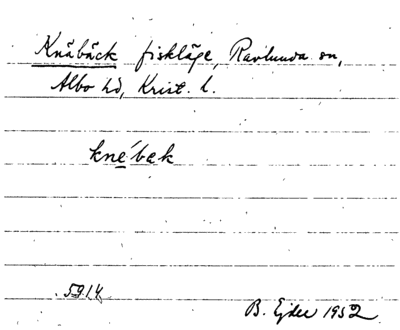 Knäbäck fiskläge, Ravlunda sn,
Albo hd, Krist. l.
kne´bæk
5914
B. Ejder 1952